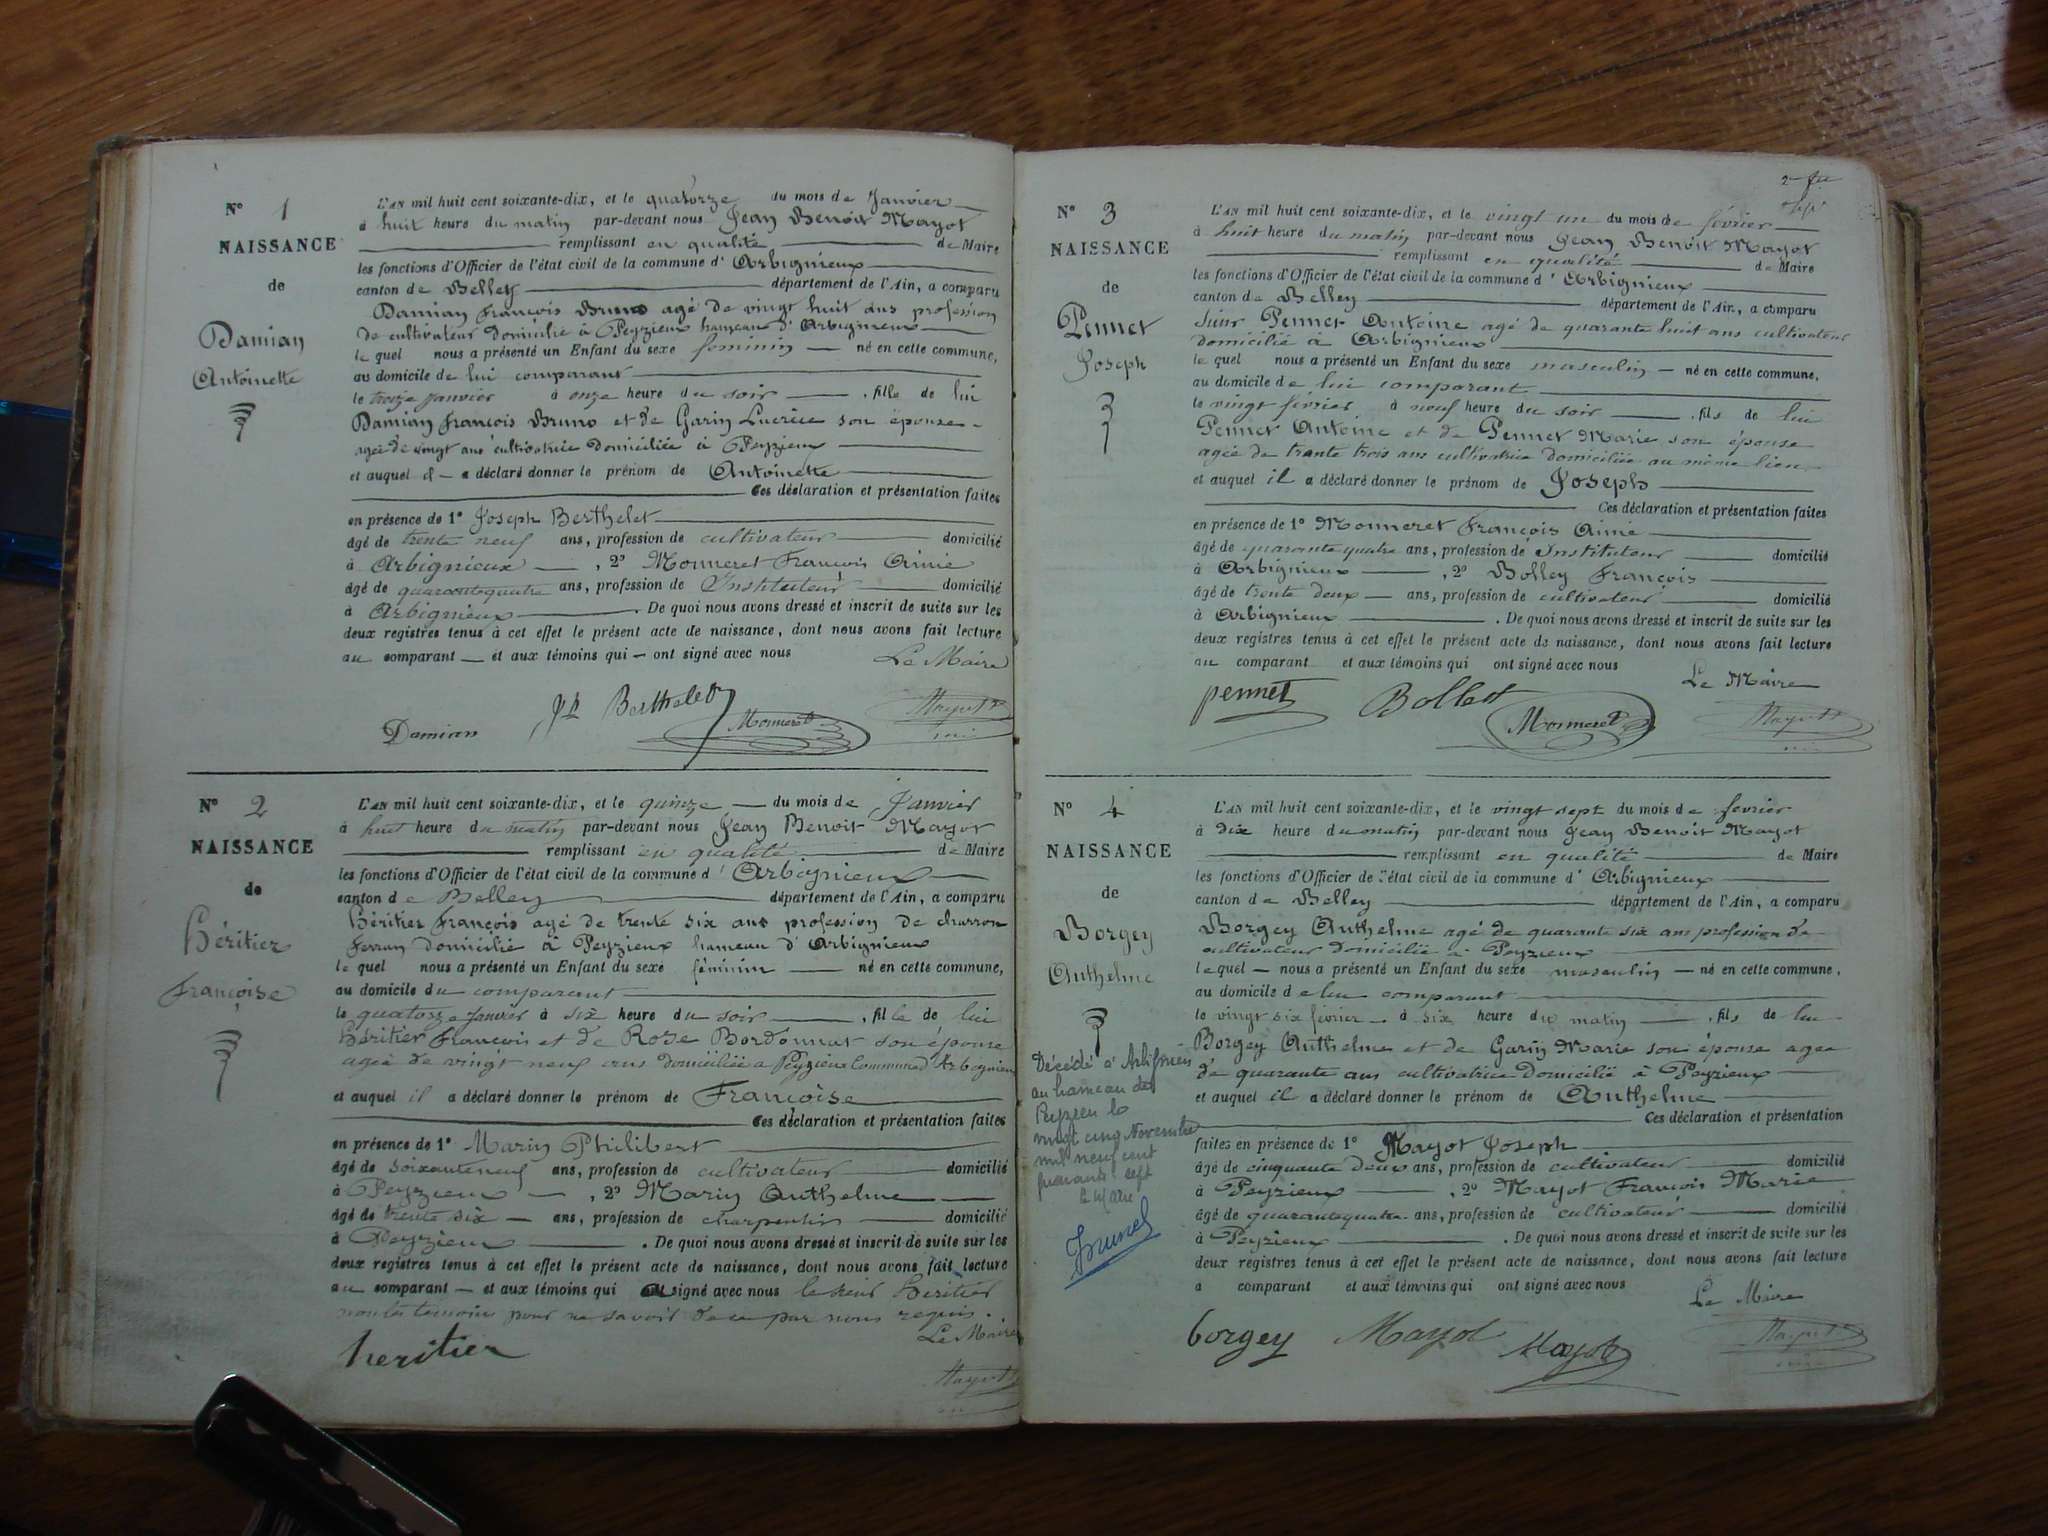 N° 1
NAISSANCE
de
Damian
Antoinette
L'AN mil huit cent soixante-dix, et le quatorze du mois de Janvier
à huit heure du matin par-devant nous Jean Benoit Mayot
remplissant en qualité de Maire
les fonctions d'Officier de l'état civil de la commune d' Arbignieux
canton de Belley département de l'Ain, a comparu
Damian François Bruno agé de vingt huit ans profession
de cultivateur domicilié à Peyzieux hameau d'Arbignieux
le quel nous a présenté un Enfant du sexe feminin né en cette commune,
au domicile de lui comparant
le treize janvier à onze heure du soir, fille de lui
Damian François Bruno et de Garin Lucrèce son épouse
agée de vingt ans cultivatrice domiciliée à Peyzieux
et auquel il a déclaré donner le prénom de Antoinette
Ces déclaration et présentation faites
en présence de 1° Joseph Berthelet
âgé de trente neuf ans, profession de cultivateur domicilié
à Arbignieux, 2° Monneret François Aimé
âgé de quarantequatre ans, profession de Instituteur domicilié
à Arbignieux. De quoi nous avons dressé et inscrit de suite sur les
deux registres tenus à cet effet le présent acte de naissance, dont nous avons fait lecture
au comparant et aux témoins qui ont signé avec nous
Le Maire
Damian Jh Berthelet Monneret Mayot
N° 2
NAISSANCE
de
Héritier
Françoise
L'AN mil huit cent soixante-dix, et le quinze du mois de Janvier
à huit heure du matin par-devant nous Jean Benoit Mayot
remplissant en qualité de Maire
les fonctions d'Officier de l'état civil de la commune d' Arbignieux
canton de Belley département de l'Ain, a comparu
Héritier François agé de trente six ans profession de charron
Ferran domicilié à Peyzieux hameau d'Arbignieux
le quel nous a présenté un Enfant du sexe féminin né en cette commune,
au domicile du comparant
le quatorze Janvier à six heure du soir, fille de lui
Héritier François et de Rose Bordonnat son épouse
agée de vingt neuf ans domiciliée a Peyzieux Commune d'Arbignieux
et auquel il a déclaré donner le prénom de Françoise
Ces déclaration et présentation faites
en présence de 1° Marin Philibert
âgé de soixanteneuf ans, profession de cultivateur domicilié
à Peyzieux, 2° Marin Anthelme
âgé de trente six ans, profession de charpentier domicilié
à Peyzieux. De quoi nous avons dressé et inscrit de suite sur les
deux registres tenus à cet effet le présent acte de naissance, dont nous avons fait lecture
au comparant et aux témoins qui signé avec nous le sieur Héritier
non les temoins pour ne savoir de ce par nous requis.
Le Maire
heritier
Mayot
2
N° 3
NAISSANCE
de
Pennet
Joseph
L'AN mil huit cent soixante-dix, et le vingt un du mois de février
à huit heure du matin par-devant nous Jean Benoit Mayot
remplissant en qualité de Maire
les fonctions d'Officier de l'état civil de la commune d' Arbignieux
canton de Belley département de l'Ain, a comparu
Sieur Pennet Antoine agé de quarante huit ans cultivateur
domicilié à Arbignieux
le quel nous a présenté un Enfant du sexe masculin né en cette commune,
au domicile de lui comparant
le vingt février à neuf heure du soir, fils de lui
Pennet Antoine et de Pennet Marie son épouse
agée de trente trois ans cultivatrice domiciliée au même lieu
et auquel il a déclaré donner le prénom de Joseph
Ces déclaration et présentation faites
en présence de 1° Monneret François Aimé
âgé de quarantequatre ans, profession de Instituteur domicilié
à Arbignieux, 2° Bolley François
âgé de trente deux ans, profession de cultivateur domicilié
à Arbignieux. De quoi nous avons dressé et inscrit de suite sur les
deux registres tenus à cet effet le présent acte de naissance, dont nous avons fait lecture
au comparant et aux témoins qui ont signé avec nous
Le Maire
pennet Bollet Monneret Mayot
N° 4
NAISSANCE
de
Borgey
Anthelme
Décédé à Arbignieu
au hameau de
Peyzieu le
vingt cinq Novembre
mil neuf cent
quarante sept
le Maire
Brunel
L'AN mil huit cent soixante-dix, et le vingt sept du mois de fevrier
à dix heure du matin par-devant nous Jean Benoit Mayot
remplissant en qualité de Maire
les fonctions d'Officier de l'état civil de la commune d' Arbignieux
canton de Belley département de l'Ain, a comparu
Borgey Anthelme agé de quarante six ans profession de
cultivateur domicilié à Peyzieux
le quel nous a présenté un Enfant du sexe masculin né en cette commune,
au domicile de lui comparant
le vingt six février à six heure du matin, fils de lui
Borgey Anthelme et de Garin Marie son épouse agée
de quarante ans cultivatrice domicilié à Peyzieux
et auquel il a déclaré donner le prénom de Anthelme
Ces déclaration et présentation
faites en présence de 1° Mayot Joseph
âgé de cinquante deux ans, profession de cultivateur domicilié
à Peyzieux, 2° Mayot François Marie
âgé de quarantequatre ans, profession de cultivateur domicilié
à Peyzieux. De quoi nous avons dressé et inscrit de suite sur les
deux registres tenus à cet effet le présent acte de naissance, dont nous avons fait lecture
a comparant et aux témoins qui ont signé avec nous
Le Maire
borgey Mayot Mayot Mayot